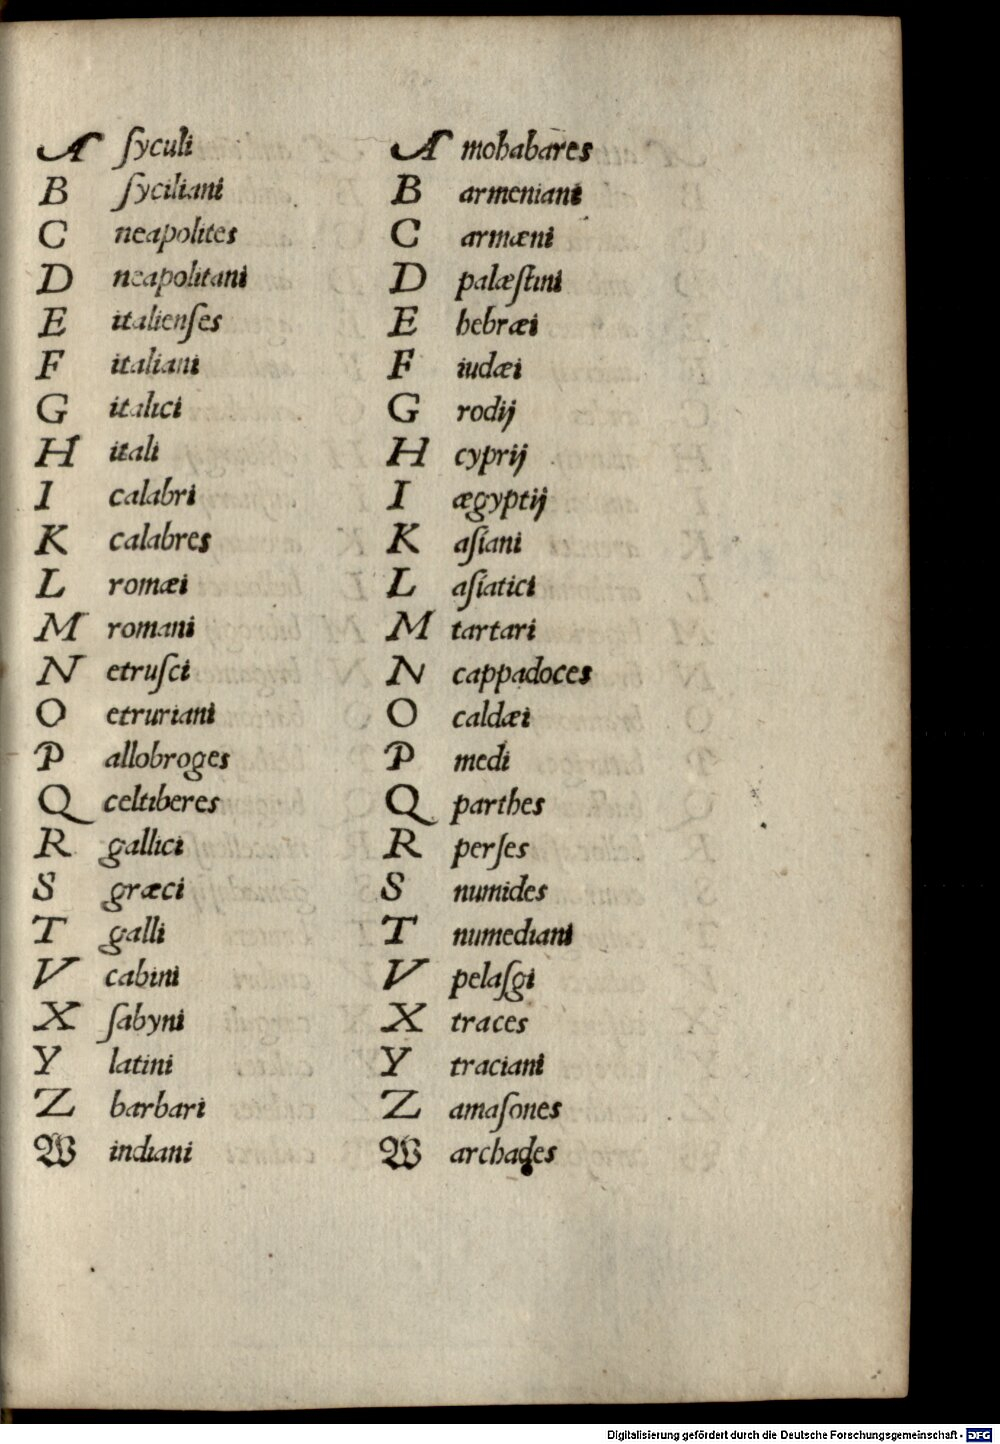 A ſyculi
B ſyciliani
C neapolites
D neapolitani
E italienſes
F italiani
G italici
H itali
I calabri
K calabres
L romæi
M romani
N etruſci
O etruriani
P allobroges
Q celtiberes
R gallici
S græci
T galli
V cabini
X ſabyni
Y latini
Z barbari
W indiani
A mohabares
B armeniani
C armæni
D palæſtini
E hebræi
F iudæi
G rodij
H cyprij
I ægyptij
K aſiani
L aſiatici
M tartari
N cappadoces
O caldæi
P medi
Q parthes
R perſes
S numides
T numediani
V pelaſgi
X traces
Y traciani
Z amaſones
W archades
Digitalisierung gefördert durch die Deutsche Forschungsgemeinschaft - DFG